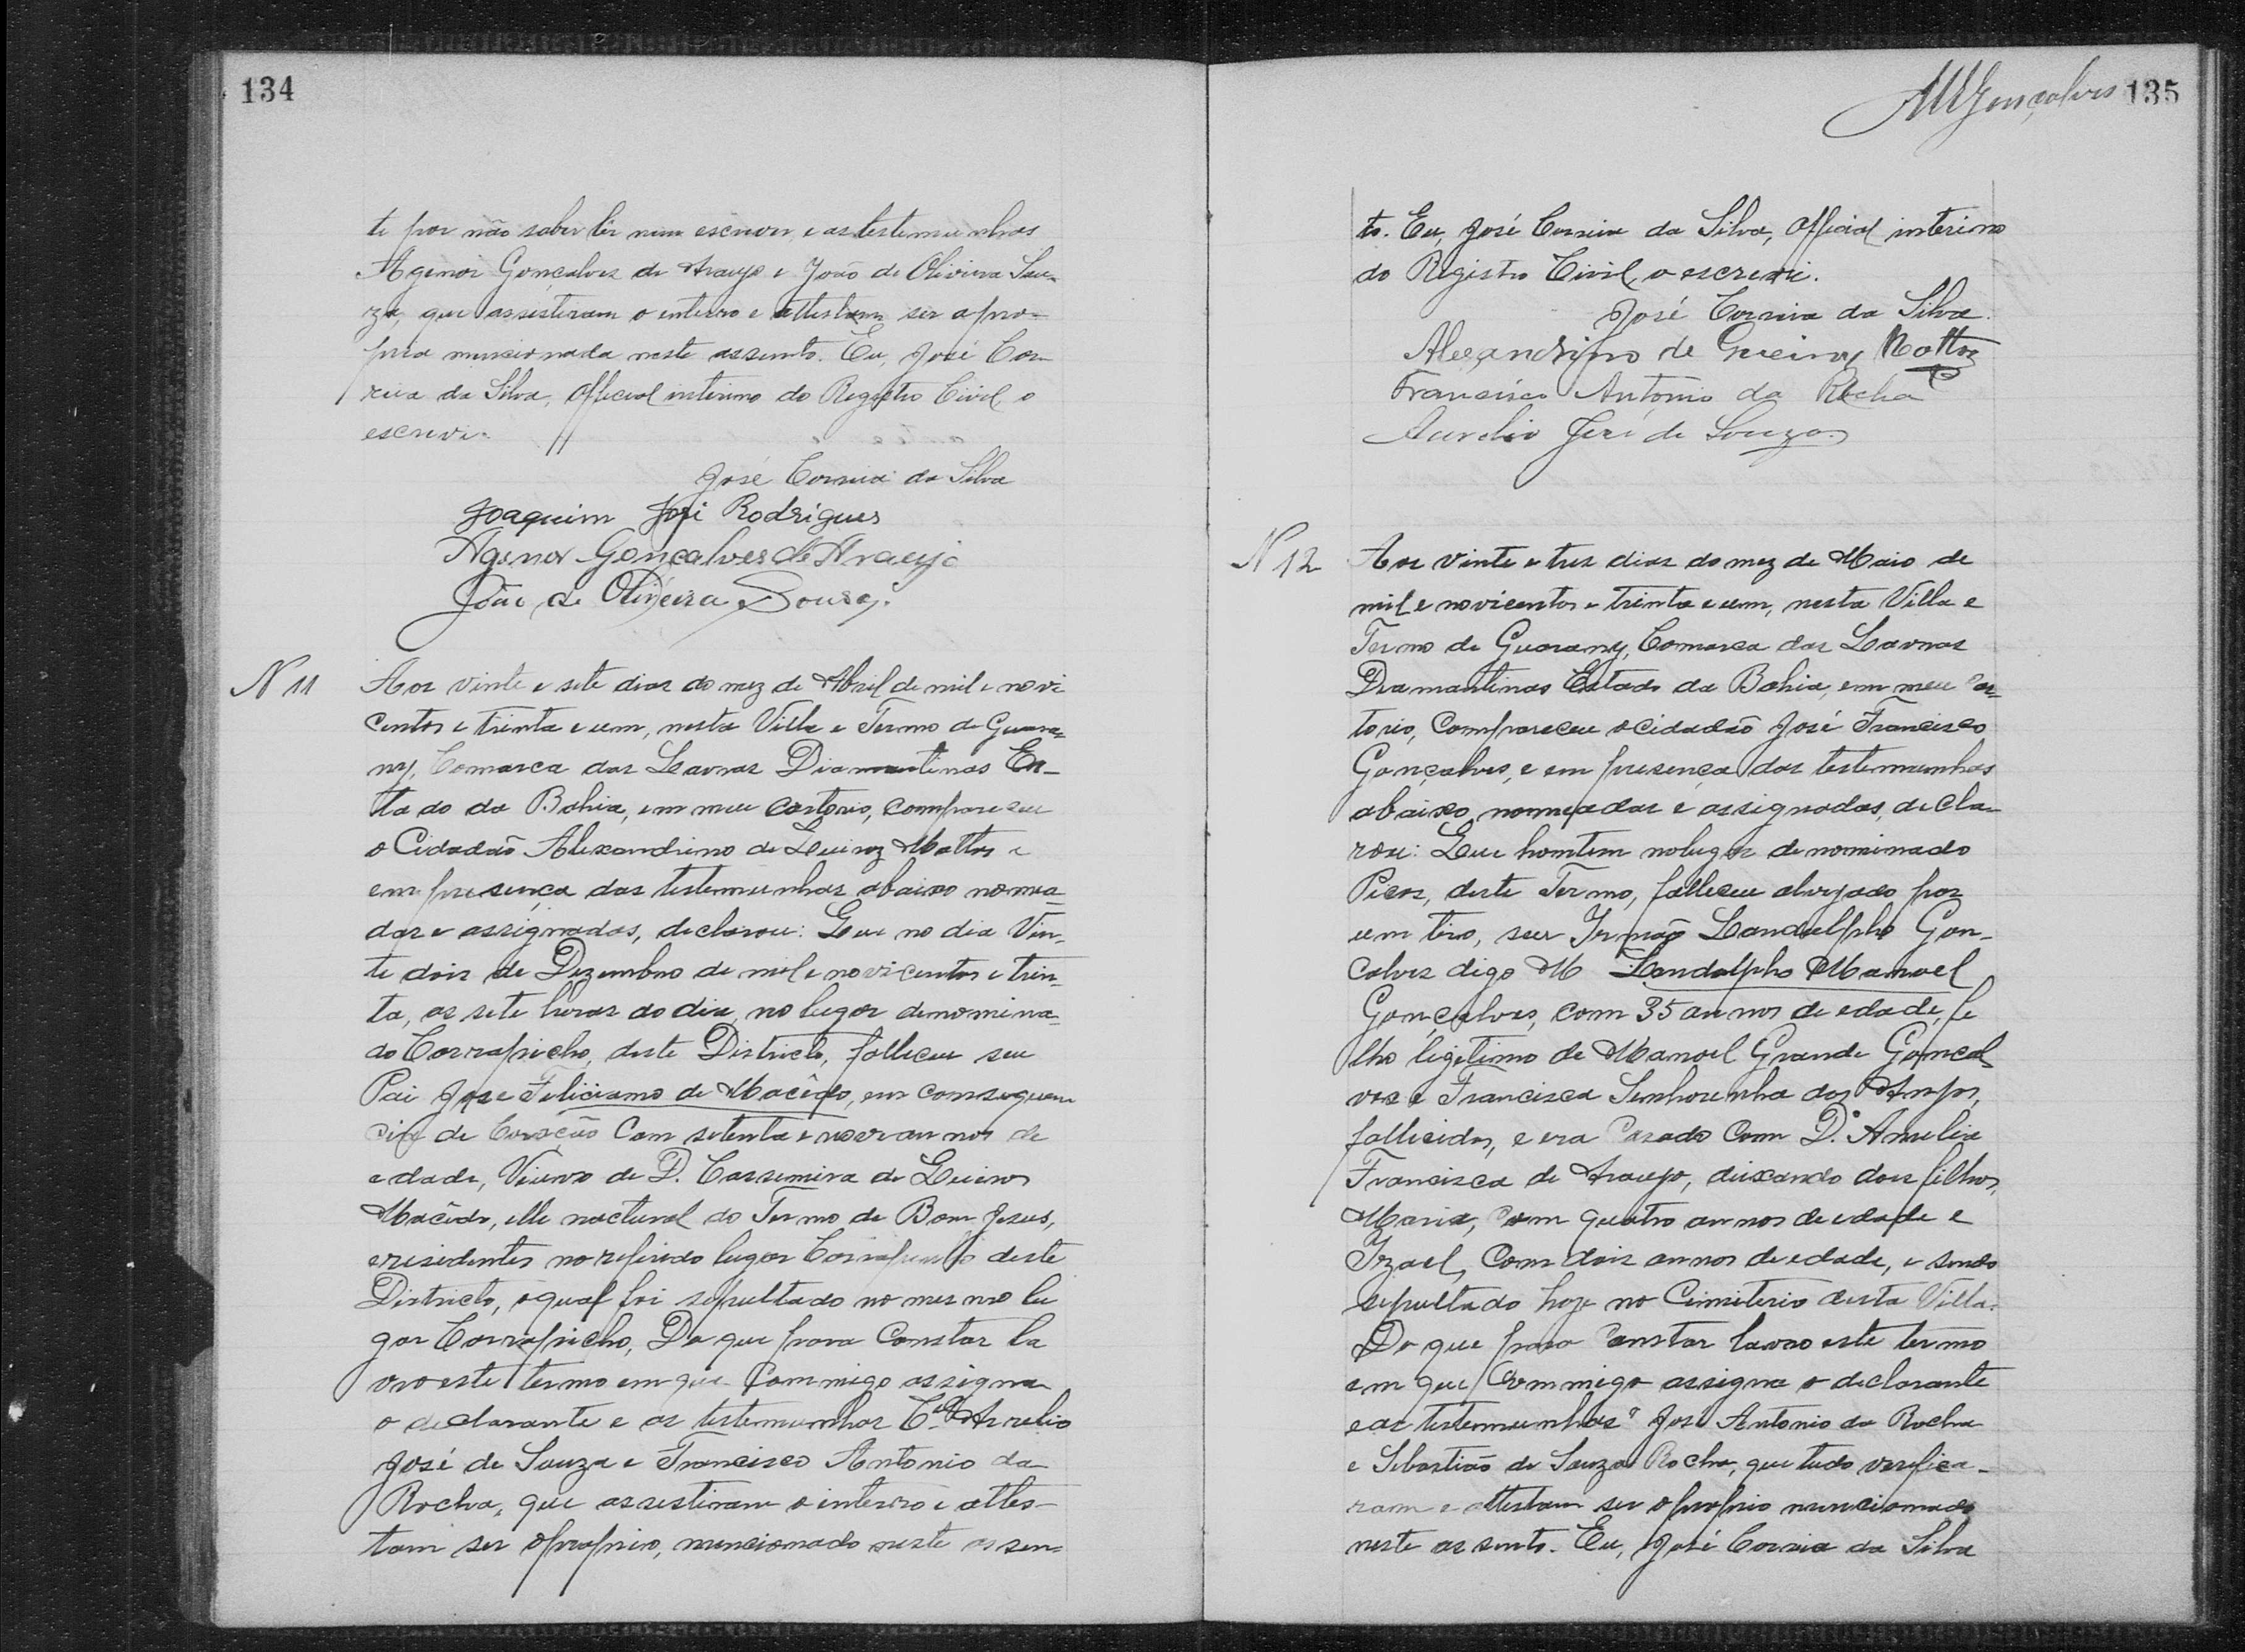 134
te por não saber ler nem escrever, e as testemunhas
Agenor Gonçalves de Araujo e João de Oliveira Sou-
za, que assesteram o enterro e attestam ser a pro-
pria muncionada neste assento. Eu, José Cor-
reia da Silva, Official interino do Registro Civil, o
escrevi.
José Correia da Silva
Joaquim José Rodrigues
Agenor Gonçalves de Araujo
João de Oliveira Souza.
N 11
Aos vinte e sete dias do mez de Abril de mil e novi
centos e trinta e um, nesta Villa e Termo de Guara-
ny, Comarca das Lavras Diamantinas Es-
tado da Bahia, em meu cartorio, compareceu
o Cidadão Alexandrino de Queiroz Mattos e
em presença das testemunhas abaixo nomea-
das e assignadas, declarou: Que no dia Vin-
te dois de Dezembro de mil e novicentos e trin-
ta, as sete horas do dia, no lugar denomina-
do Carrapicho, deste Districto, falleceu seu
Pai José Feliciano de Macêdo, em conseguen
cia de Coração Com setenta e nove annos de
edade, Viuvo de D. Cassemira de Queiros
Macêdo, elle nactural do Termo de Bom Jesus,
e residentes no referido lugar Carrapicho deste
Districto, o qual foi sepultado no mesmo lu
gar Carrapicho, Do que para Constar la
vro este termo em que Commigo assigna
o declarante e as testemunhas Cel Aurelio
José de Souza e Francisco Antonio da
Rocha, que assestiram o interro e attes-
tam ser o proprio, muncionado neste assen-
MGonçalves 135
to. Eu, José Correia da Silva, Official interino
do Registro Civil, o escrevi.
José Correia da Silva.
Alexandrino de Queiroz Mattos
Francisco Antonio da Rocha
Aurelio José de Souza
N 12
Aos vinte e tres dias do mez de Maio de
mil e novicentos e trinta e um, nesta Villa e
Termo de Guarany, Comarca das Lavras
Diamantinas Estado da Bahia, em meu Car-
torio, Compareceu o cidadão José Francisco
Gonçalves, e em presença das testemunhas
abaixo nomeadas e assignadas, decla-
rou: Que hontem no lugar denominado
Picos, deste Termo, falleceu alvejado por
um tiro, seu Irmão Landulpho Gon-
calves digo M Landolpho Manoel
Gonçalves, com 35 annos de edade, fe
lho legitimo de Manoel Grande Gonçal-
ves e Francisca Senhorinha dos Anjos,
fallecidos, e era Casado Com D. Amelia
Francisca de Araujo, deixando dois filhos,
Maria, Com quatro annos de edade e
Izael, Com dois annos de edade, e sendo
sepultado hoje no Cimiterio desta Villa.
Do que para Constar lavro este termo
em que Commigo assigna o declarante
e as testemunhas José Antonio da Rocha
e Sebastião de Souza Rocha, que tudo verifica-
ram e attestam ser o proprio muncionado
neste assento. Eu, José Correia da Silva